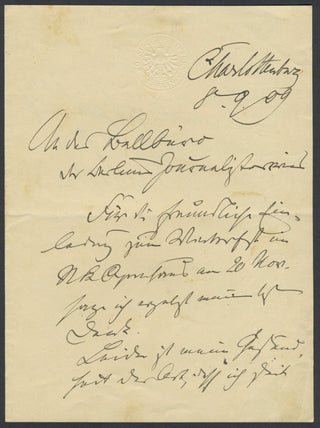 Charlottenburg
8. 9. 09
An das Ballbüro
der Berliner Journalisten
Für die freundliche Ein-
ladung zum Winterfest im
am 20 Nov.
sage ich ergebenst meinen
Dank.
Leider ist mein Gesund-
heit der Art, daß ich seit